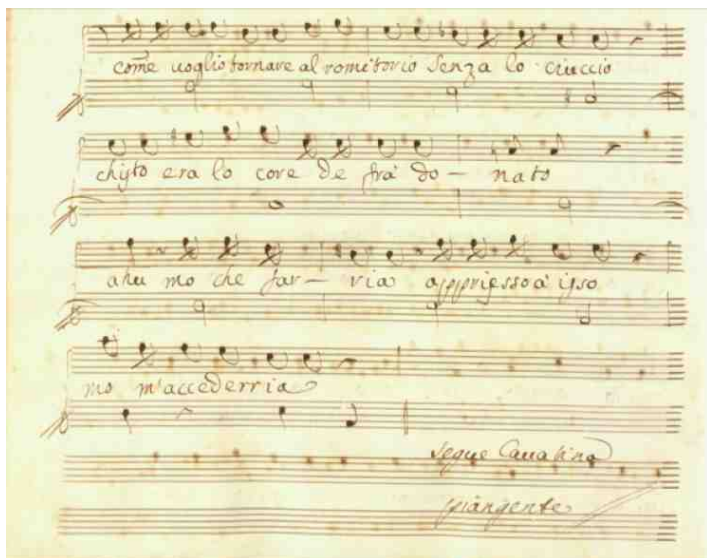 come uoglio tornare al romitorio senza lo ciuccio
chisto era lo core de fra' do – nato
ahu mo che far – ria appriesso a isso
mo m'accederria
segue Cauatina
piangente